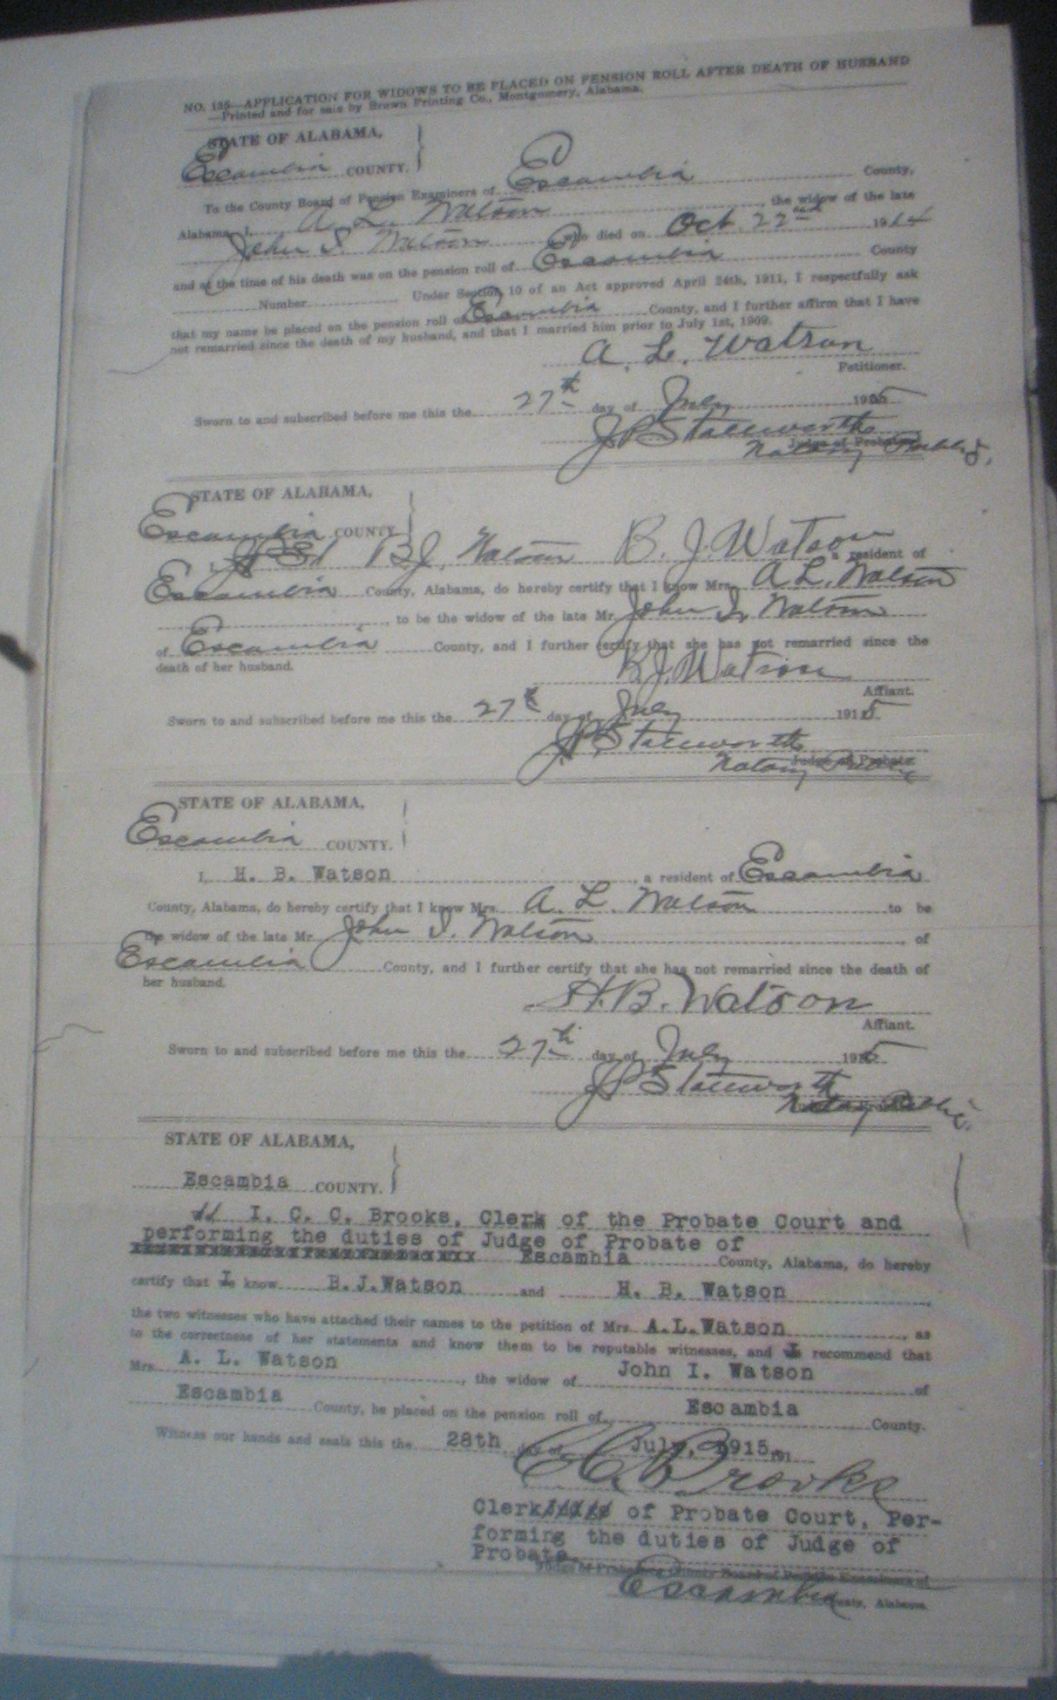 NO. 135—APPLICATION FOR WIDOWS TO BE PLACED ON PENSION ROLL AFTER DEATH OF HUSBAND
—Printed and for sale by Brown Printing Co., Montgomery, Alabama.
STATE OF ALABAMA,
Escambia COUNTY.
To the County Board of Pension Examiners of Escambia County,
Alabama, I, A. L. Watson, the widow of the late
John I. Watson who died on Oct 22nd 1914
and at the time of his death was on the pension roll of Escambia County
Number Under Section 10 of an Act approved April 24th, 1911, I respectfully ask
that my name be placed on the pension roll of Escambia County, and I further affirm that I have
not remarried since the death of my husband, and that I married him prior to July 1st, 1909.
A. L. Watson
Petitioner.
Sworn to and subscribed before me this the 27th day of July 1915
J P Stallworth
Judge of Probate
Notary Public,
STATE OF ALABAMA,
Escambia COUNTY
B. J. Watson B. J. Watson a resident of
Escambia County, Alabama, do hereby certify that I know Mrs. A L. Watson
, to be the widow of the late Mr. John I. Watson
of Escambia County, and I further certify that she has not remarried since the
death of her husband.
B. J. Watson
Affiant.
Sworn to and subscribed before me this the 27th day of July 1915
J P Stallworth
Judge of Probate
Notary Public
STATE OF ALABAMA,
Escambia COUNTY.
I, H. B. Watson, a resident of Escambia
County, Alabama, do hereby certify that I know Mrs. A. L. Watson to be
the widow of the late Mr. John I. Watson, of
Escambia County, and I further certify that she has not remarried since the death of
her husband.
H. B. Watson
Affiant.
Sworn to and subscribed before me this the 27th day of July 1915
J P Stallworth
Notary Public.
STATE OF ALABAMA,
Escambia COUNTY.
I, C. C. Brooks, Clerk of the Probate Court and
performing the duties of Judge of Probate of
Escambia County, Alabama, do hereby
certify that I know B.J.Watson and H. B. Watson
the two witnesses who have attached their names to the petition of Mrs. A.L.Watson, as
to the correctness of her statements and know them to be reputable witnesses, and I recommend that
Mrs. A. L. Watson, the widow of John I. Watson of
Escambia County, be placed on the pension roll of Escambia County.
Witness our hands and seals this the 28th day of July, 1915,
C. C. Brooks
Clerk of Probate Court, Per-
forming the duties of Judge of
Probate.
Escambia County, Alabama.